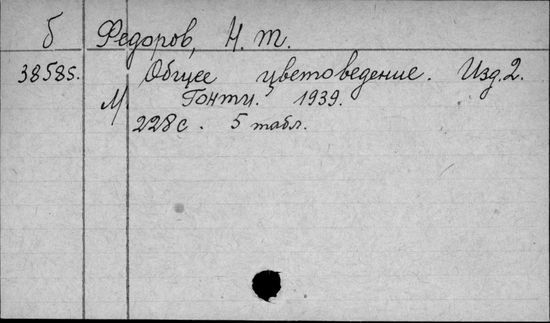 б Федоров, Н. Т.
38585. Общее цветоведение. Изд. 2.
М. Гонти. 1939.
228 с. 5 табл.